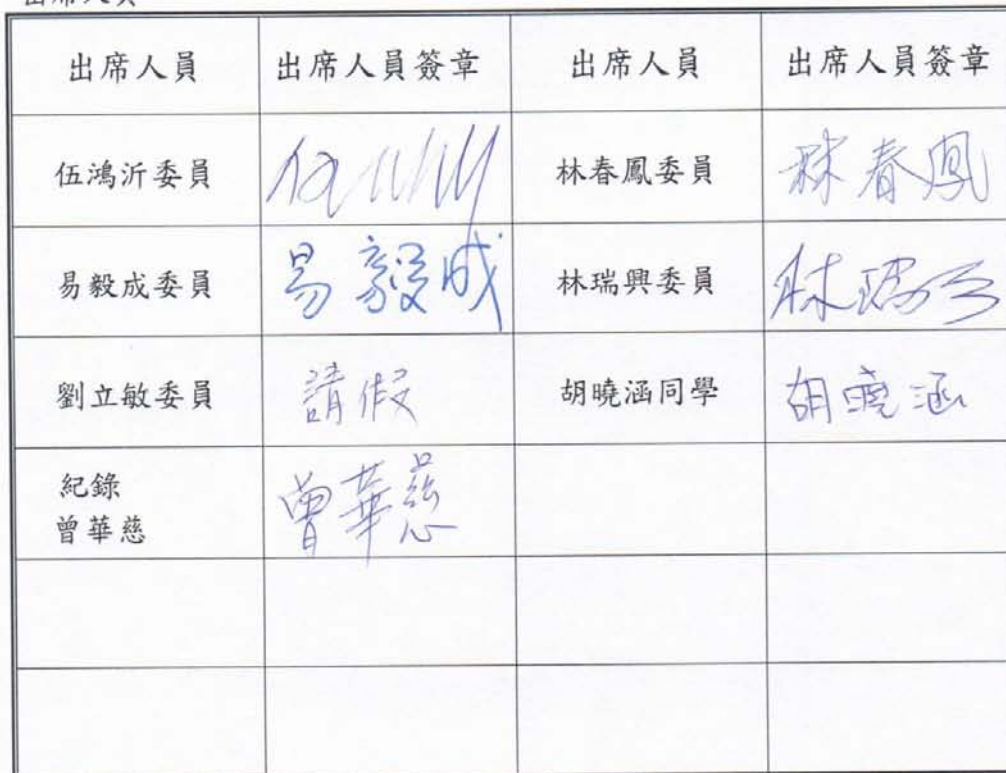 出席人員
出席人員 出席人員簽章 出席人員 出席人員簽章
伍鴻沂委員 伍 林春鳳委員 林春鳳
易毅成委員 易毅成 林瑞興委員 林瑞
劉立敏委員 請假 胡曉涵同學 胡曉涵
紀錄
曾華慈 曾華慈